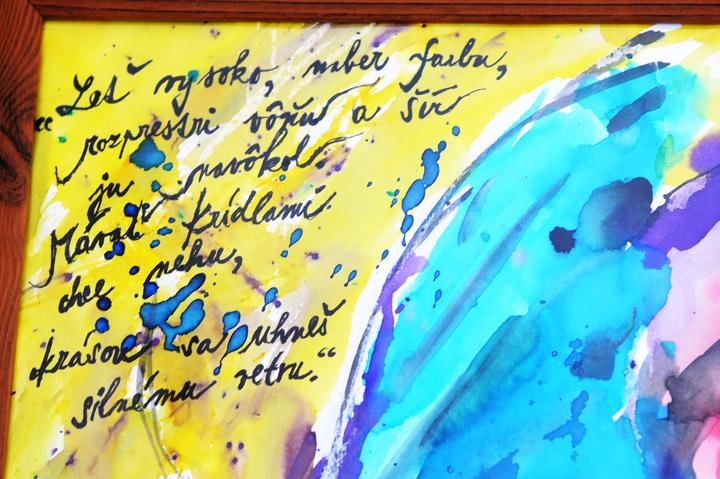 „Leť vysoko, naber farbu,
rozprestri vôňu a šír
ju navôkol.
Mávaš krídlami
chce nehu,
krásou sa uhneš
silnému vetru.“